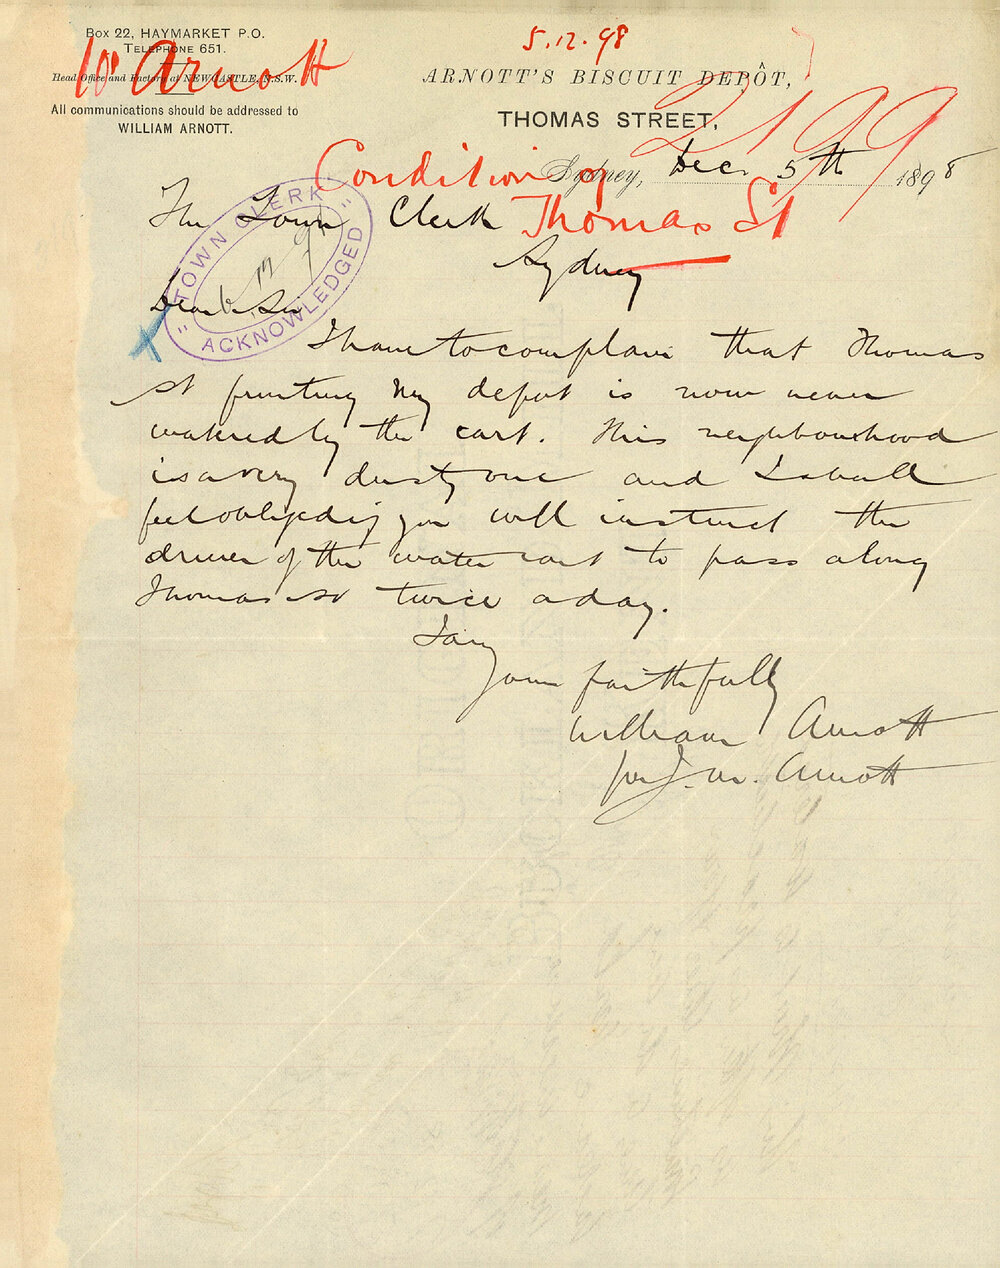 Box 22, HAYMARKET P.O.
TELEPHONE 651.
Head Office and Factory at NEWCASTLE, N.S.W.
All communications should be addressed to
WILLIAM ARNOTT.
Wm Arnott
5.12.98
ARNOTT'S BISCUIT DEPÔT,
THOMAS STREET,
2199
Sydney, Dec 5th 1898
Condition of
Thomas St
The Town Clerk
Sydney
"TOWN CLERK"
ACKNOWLEDGED
Dear Sir
I have to complain that Thomas
St fronting my depot is now never
watered by the cart. This neighbourhood
is a very dusty one and I shall
feel obliged if you will instruct the
driver of the water cart to pass along
Thomas St twice a day.
I am
Yours faithfully
William Arnott
per J. M. Arnott